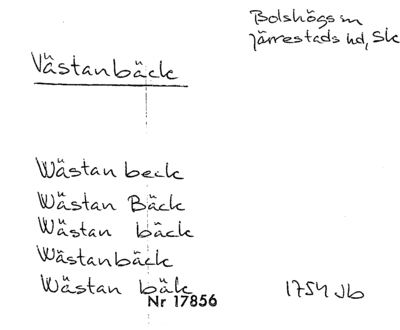 Bolshögs sn
Järrestads hd, Sk
Västanbäck
Wästan beck
Wästan Bäck
Wästan bäck
Wästanbäck
Wästan bäk 1754 Jb
Nr 17856